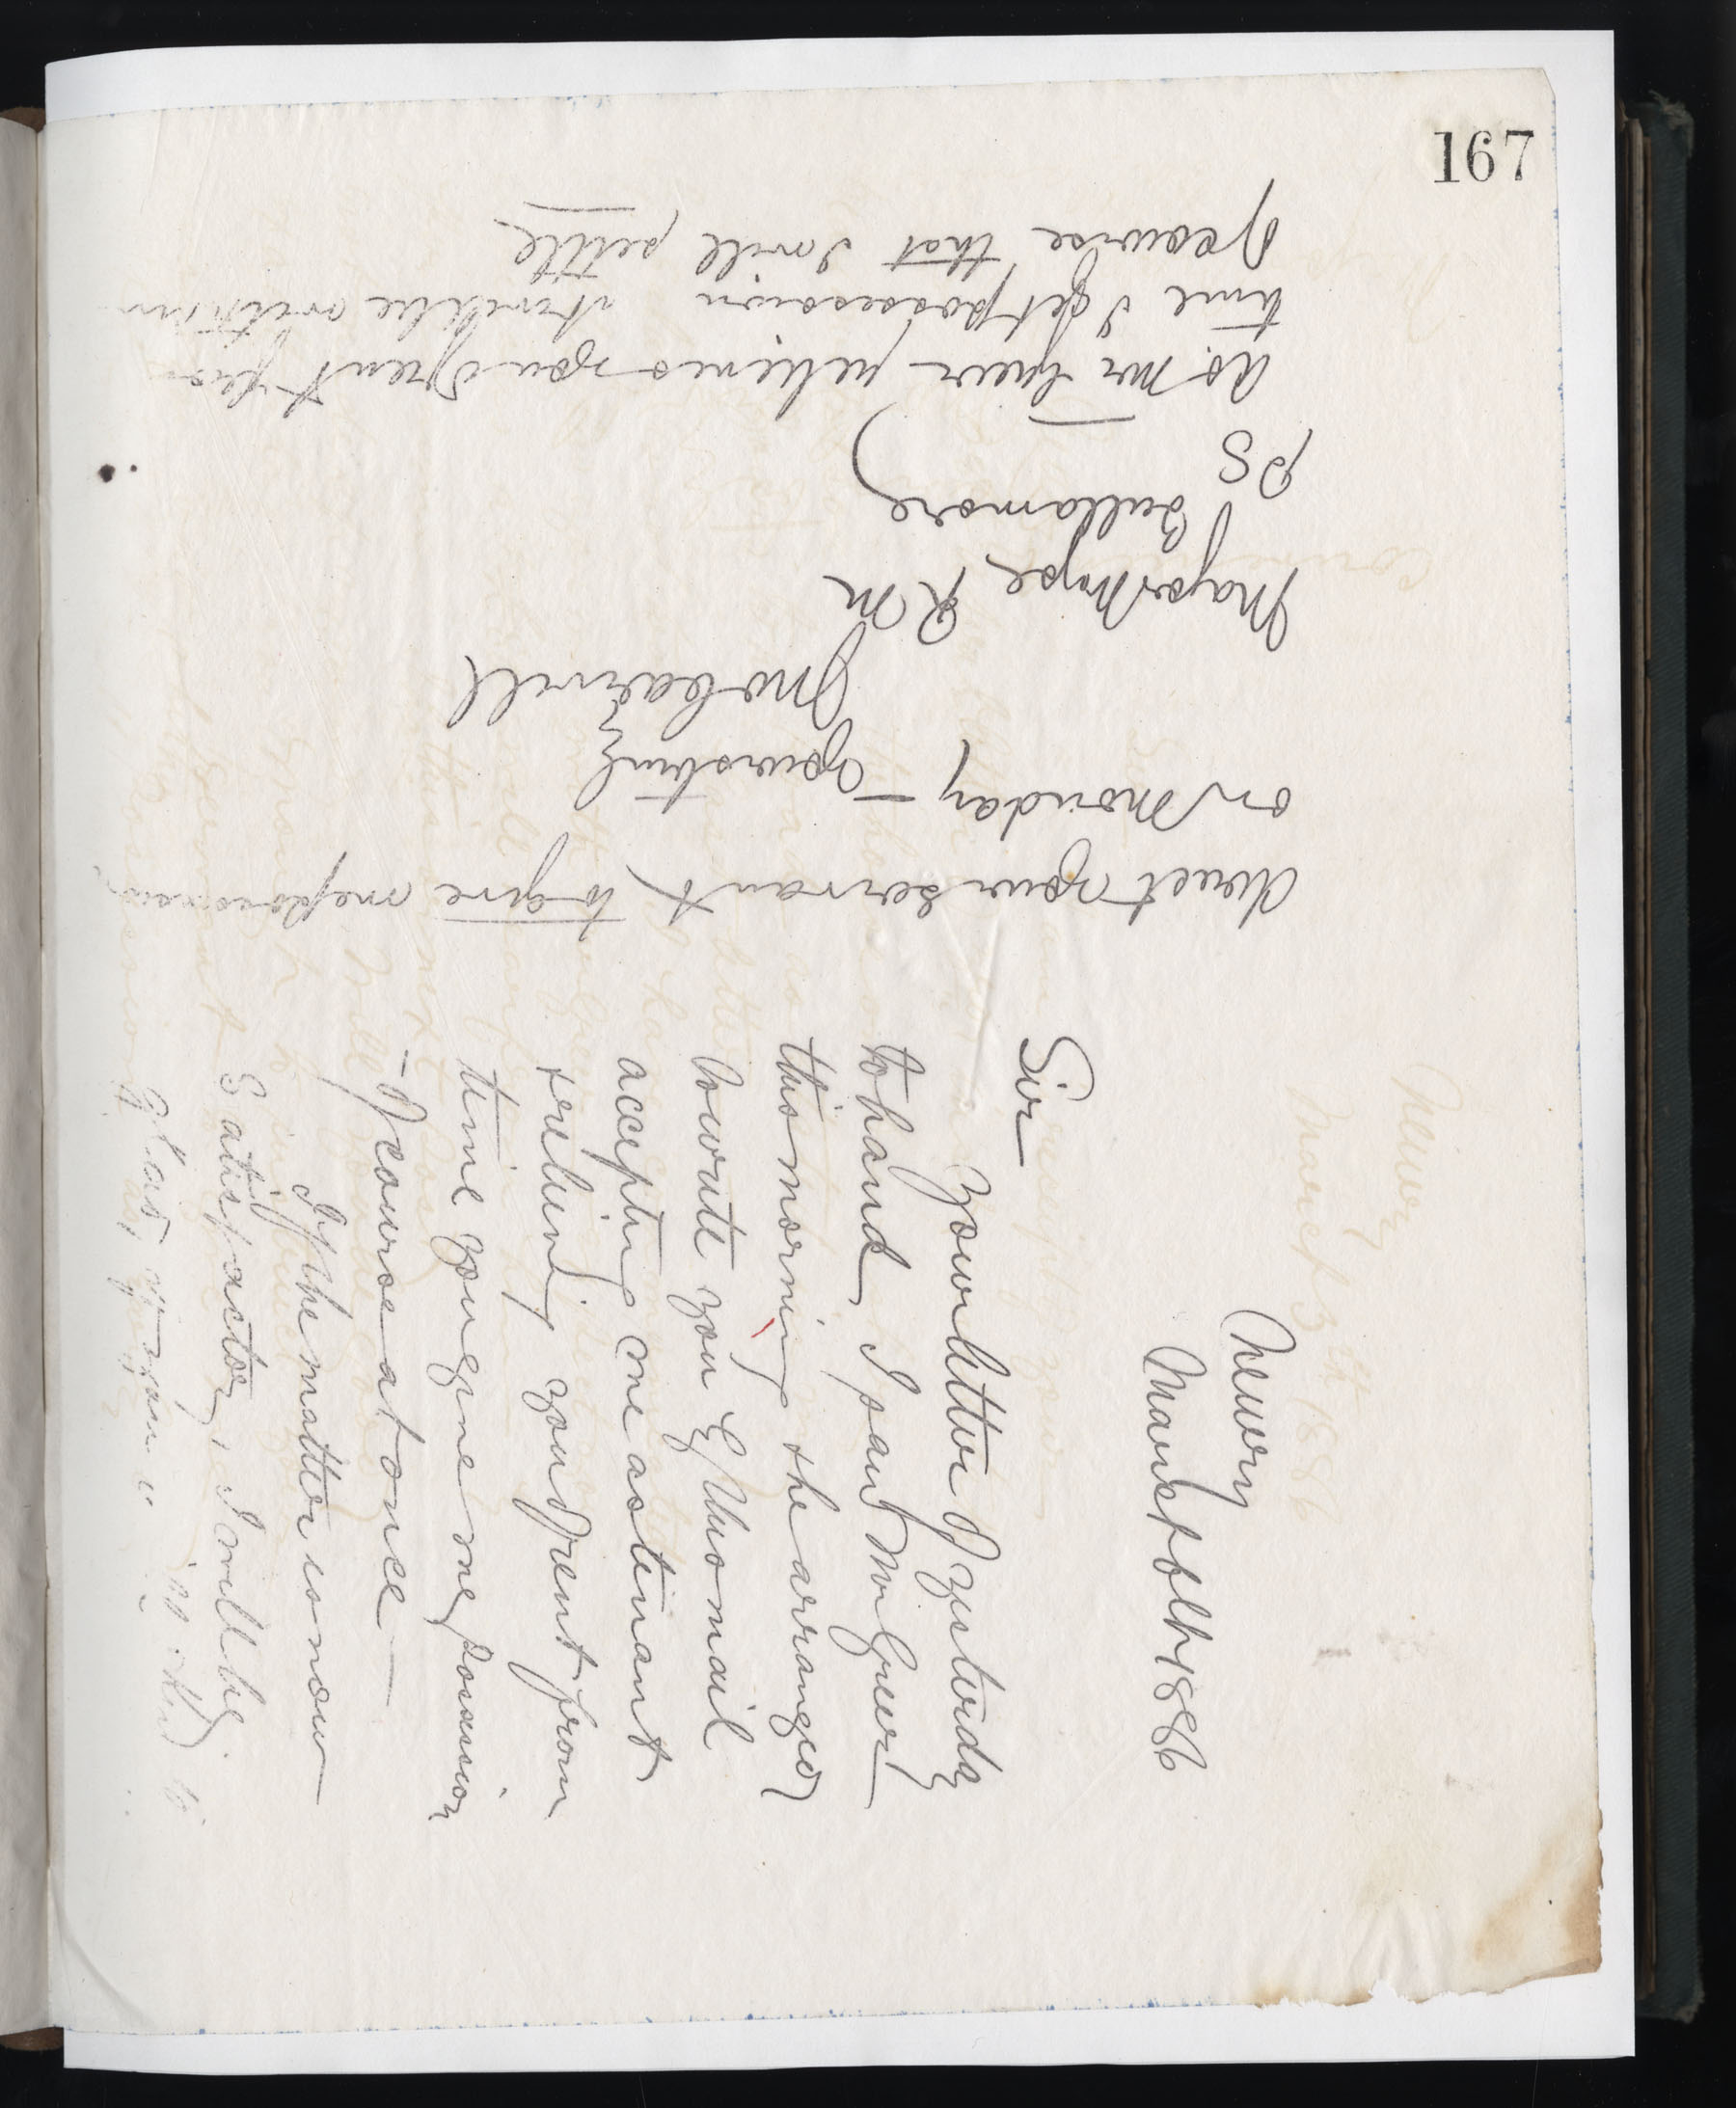 167
Newry
March 6th 1886
Sir
Your letter of yesterday
to hand, I saw Mr Greer
this morning & he arranged
to write you by this mail
accepting me as tenant
& relieving you of rent from
time you give me possession
- of course at once -
If the matter is now
Satisfactory, I will be
glad if you
direct your servant to give me possession
on Monday -
Yours truly
Jno Carvill
Major Mope R.M
Tullamore
PS
As Mr Greer relieves you of rent from
time I get possession it will be
of course that I will settle